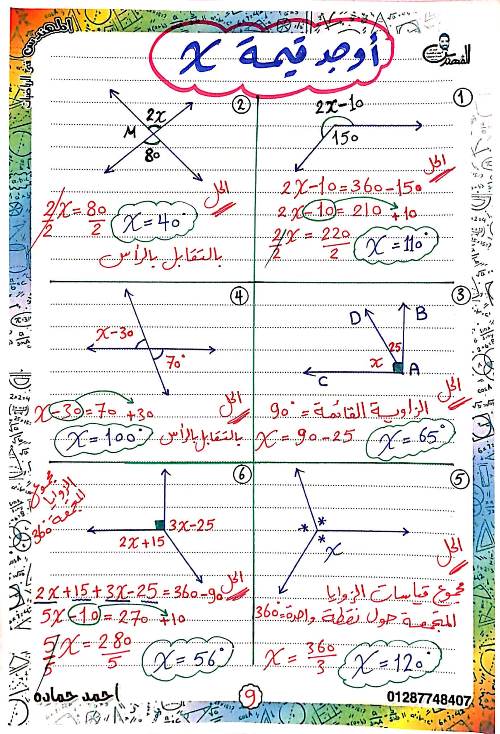 أوجد قيمة x
①
2x-10
150
الحل
2x-10=360-150
2x-10=210 +10
2/2 x = 220/2
x=110°
②
M
2x
80
الحل
2/2 x = 80/2
x=40°
بالتقابل بالرأس
③
D
B
25
x
C
A
الحل
الزاوية القائمة = 90°
x = 90-25
x=65°
④
x-30
70°
الحل
x-30=70 +30
x=100°
بالتقابل بالرأس
⑤
* * *
x
الحل
مجموع قياسات الزوايا
المتجمعة حول نقطة واحدة=360°
x = 360/3
x=120°
⑥
مجموع
الزوايا
المتجمعة
360°
3x-25
2x+15
الحل
2x+15+3x-25=360-90
5x-10=270 +10
5/5 x = 280/5
x=56°
احمد حماده
9
01287748407